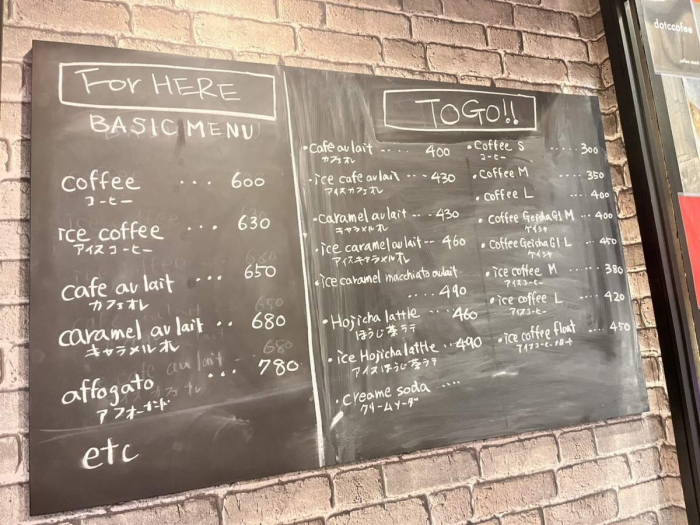 For HERE
BASIC MENU
coffee ... 600
コーヒー
ice coffee ... 630
アイスコーヒー
cafe au lait ... 650
カフェオレ
caramel au lait .. 680
キャラメルオレ
affogato ... 780
アフォガード
etc
TOGO!!
・Cafe au lait ..... 400
カフェオレ
・ice cafe au lait ... 430
アイスカフェオレ
・Caramel au lait .. 430
キャラメルオレ
・ice caramel au lait -- 460
アイスキャラメルオレ
・ice caramel macchiato aulait
.... 490
・Hojicha latte ... 460
ほうじ茶ラテ
・ice Hojicha latte ..490
アイスほうじ茶ラテ
・creame soda ....
クリームソーダ
・Coffee S ..... 300
コーヒー
・Coffee M .... 350
・coffee L .... 400
・Coffee Geisha G1 M ..400
ゲイシャ
・Coffee Geisha G1 L .. 450
ゲイシャ
・ice coffee M .... 380
アイスコーヒー
・ice coffee L .... 420
アイスコーヒー
・ice coffee float .... 450
アイスコーヒーフロート
dotccofee